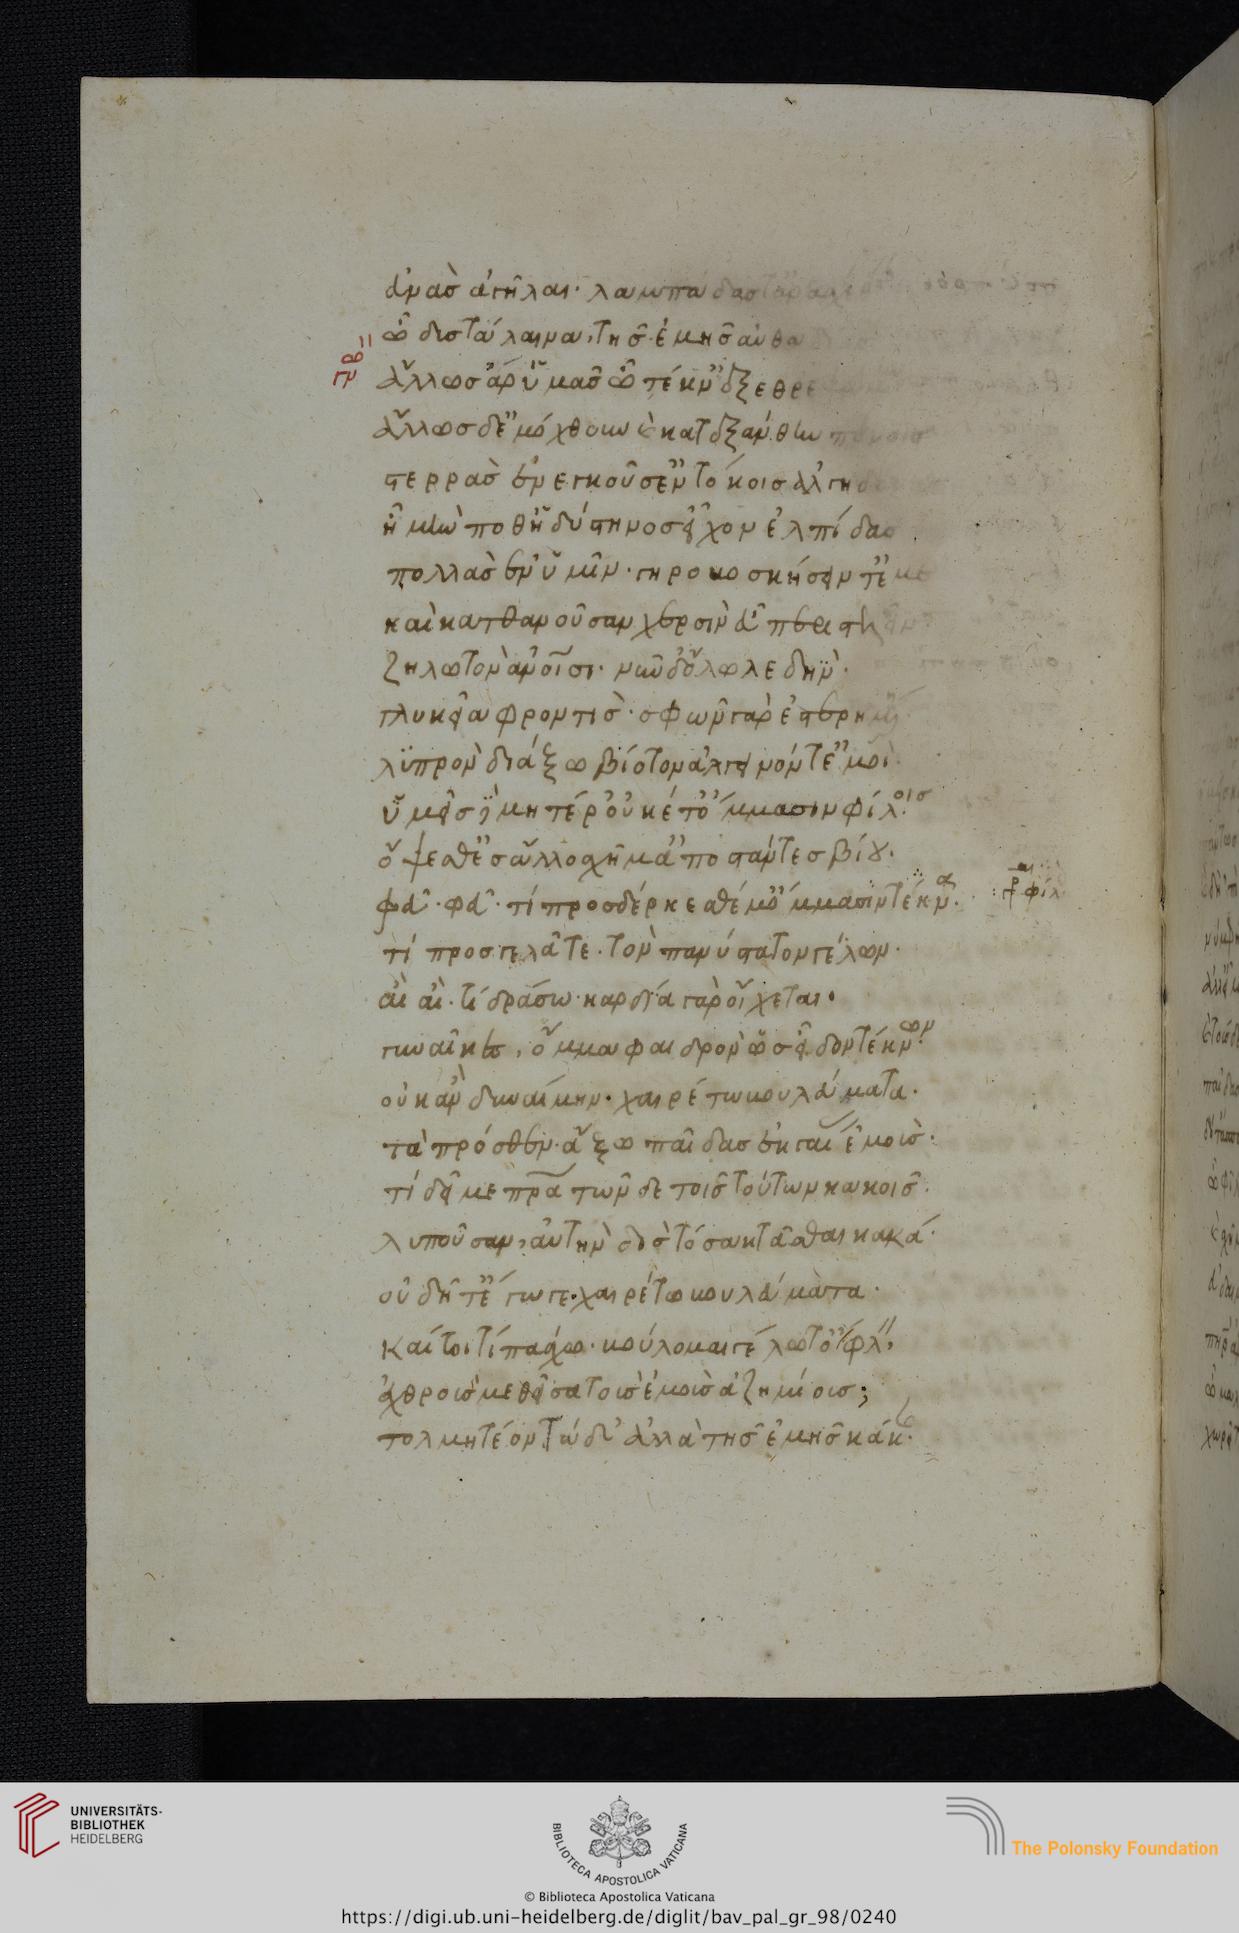 εὐνὰς ἀγῆλαι· λαμπάδας τ'
ὦ δυστάλαινα, τῆς ἐμῆς αὐθα
γνβ
ἄλλως ἄρ' ὑμᾶς ὦ τέκν' ἐξεθρε
ἄλλως δ' ἐμόχθουν καὶ κατεξάνθην πόνοις
στερρὰς ἐνεγκοῦσ' ἐν τόκοις ἀλγηδ
ἦ μὴν ποθ' ἡ δύστηνος εἶχον ἐλπίδας
πολλὰς ἐν ὑμῖν· γηροβοσκήσειν τ' ἐμὲ
καὶ κατθανοῦσαν χερσὶν εὖ περιστελ
ζηλωτὸν ἀν οῖσι· νῦν δ' ὄλωλε δὴ
γλυκεῖα φροντὶς· σφῶν γὰρ ἐστερημ
λυπρὸν διάξω βίοτον ἀλγεινόν τ' ἐμοὶ
ὑμεῖς δὲ μητέρ' οὐκέτ' ὄμμασιν φίλοις
ὄψεσθ' ἐς ἄλλο σχῆμ' ἀποστάντες βίου.
φεῦ· φεῦ· τί προσδέρκεσθέ μ' ὄμμασιν τέκνα.
φίλ
τί προσγελᾶτε. τὸν πανύστατον γέλων.
αἲ αἲ. τί δράσω· καρδία γὰρ οἴχεται.
γυναῖκες, ὄμμα φαιδρὸν ὡς εἶδον τέκνων.
οὐκ ἂν δυναίμην· χαιρέτω βουλεύματα.
τὰ πρόσθεν· ἄξω παῖδας ἐκ γαί ἐμοὺς.
τί δεῖ με πρα τῶν δε τοῖς τούτων κακοῖς.
λυποῦσαν, αὐτὴν δὶς τόσα κτᾶσθαι κακά.
οὐ δῆτ' ἔγωγε. χαιρέτω βουλεύματα.
καίτοι τί πάσχω. βούλομαι γέλωτ' ὀφλ
ἐχθροὺς μεθεῖσα τοὺς ἐμοὺς ἀζημίους;
τολμητέον τώδ' ἀλλὰ τῆς ἐμῆς κάκ.
UNIVERSITÄTS-
BIBLIOTHEK
HEIDELBERG
BIBLIOTECA APOSTOLICA VATICANA
The Polonsky Foundation
© Biblioteca Apostolica Vaticana
https://digi.ub.uni-heidelberg.de/diglit/bav_pal_gr_98/0240